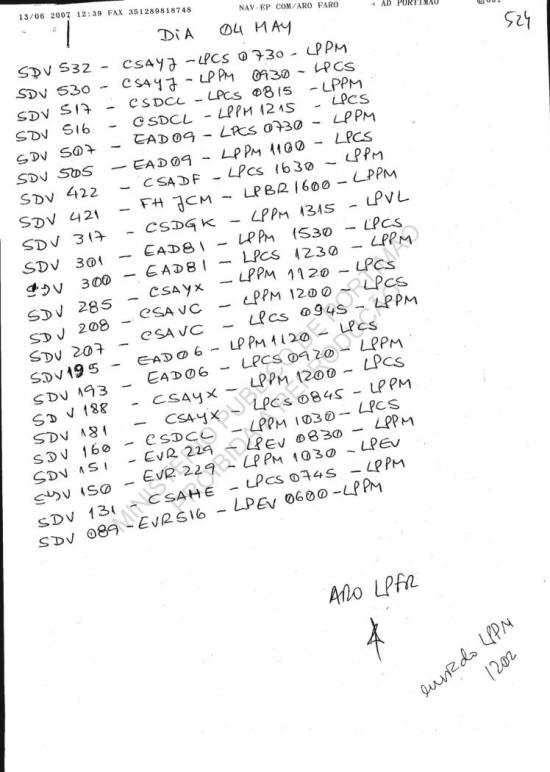 13/06 2007 12:39 FAX 351289818748 NAV-EP COM/ARO FARO → AD PORTIMAO
524
DIA 04 MAY
SDV 532 - CSAYJ - LPCS 0730 - LPPM
SDV 530 - CSAYJ - LPPM 0930 - LPCS
SDV 517 - CSDCL - LPCS 0815 - LPPM
SDV 516 - CSDCL - LPPM 1215 - LPCS
SDV 507 - EAD09 - LPCS 0730 - LPPM
SDV 505 - EAD09 - LPPM 1100 - LPCS
SDV 422 - CSADF - LPCS 1630 - LPPM
SDV 421 - FHJCM - LPBR 1600 - LPPM
SDV 317 - CSDGK - LPPM 1315 - LPVL
SDV 301 - EAD81 - LPPM 1530 - LPCS
SDV 300 - EAD81 - LPCS 1230 - LPPM
SDV 285 - CSAYX - LPPM 1120 - LPCS
SDV 208 - CSAVC - LPPM 1200 - LPCS
SDV 207 - CSAVC - LPCS 0945 - LPPM
SDV 195 - EAD06 - LPPM 1120 - LPCS
SDV 193 - EAD06 - LPCS 0920 - LPPM
SDV 188 - CSAYX - LPPM 1200 - LPCS
SDV 181 - CSAYX - LPCS 0845 - LPPM
SDV 160 - CSDCL - LPPM 1030 - LPCS
SDV 151 - EVR 229 - LPEV 0830 - LPPM
SDV 150 - EVR 229 - LPPM 1030 - LPEV
SDV 131 - CSAHE - LPCS 0745 - LPPM
SDV 089 - EVR516 - LPEV 0600 - LPPM
MINISTÉRIO PÚBLICO DE PORTIMÃO
PROIBIDA A REPRODUÇÃO
ARO LPFR
LPPM
1202